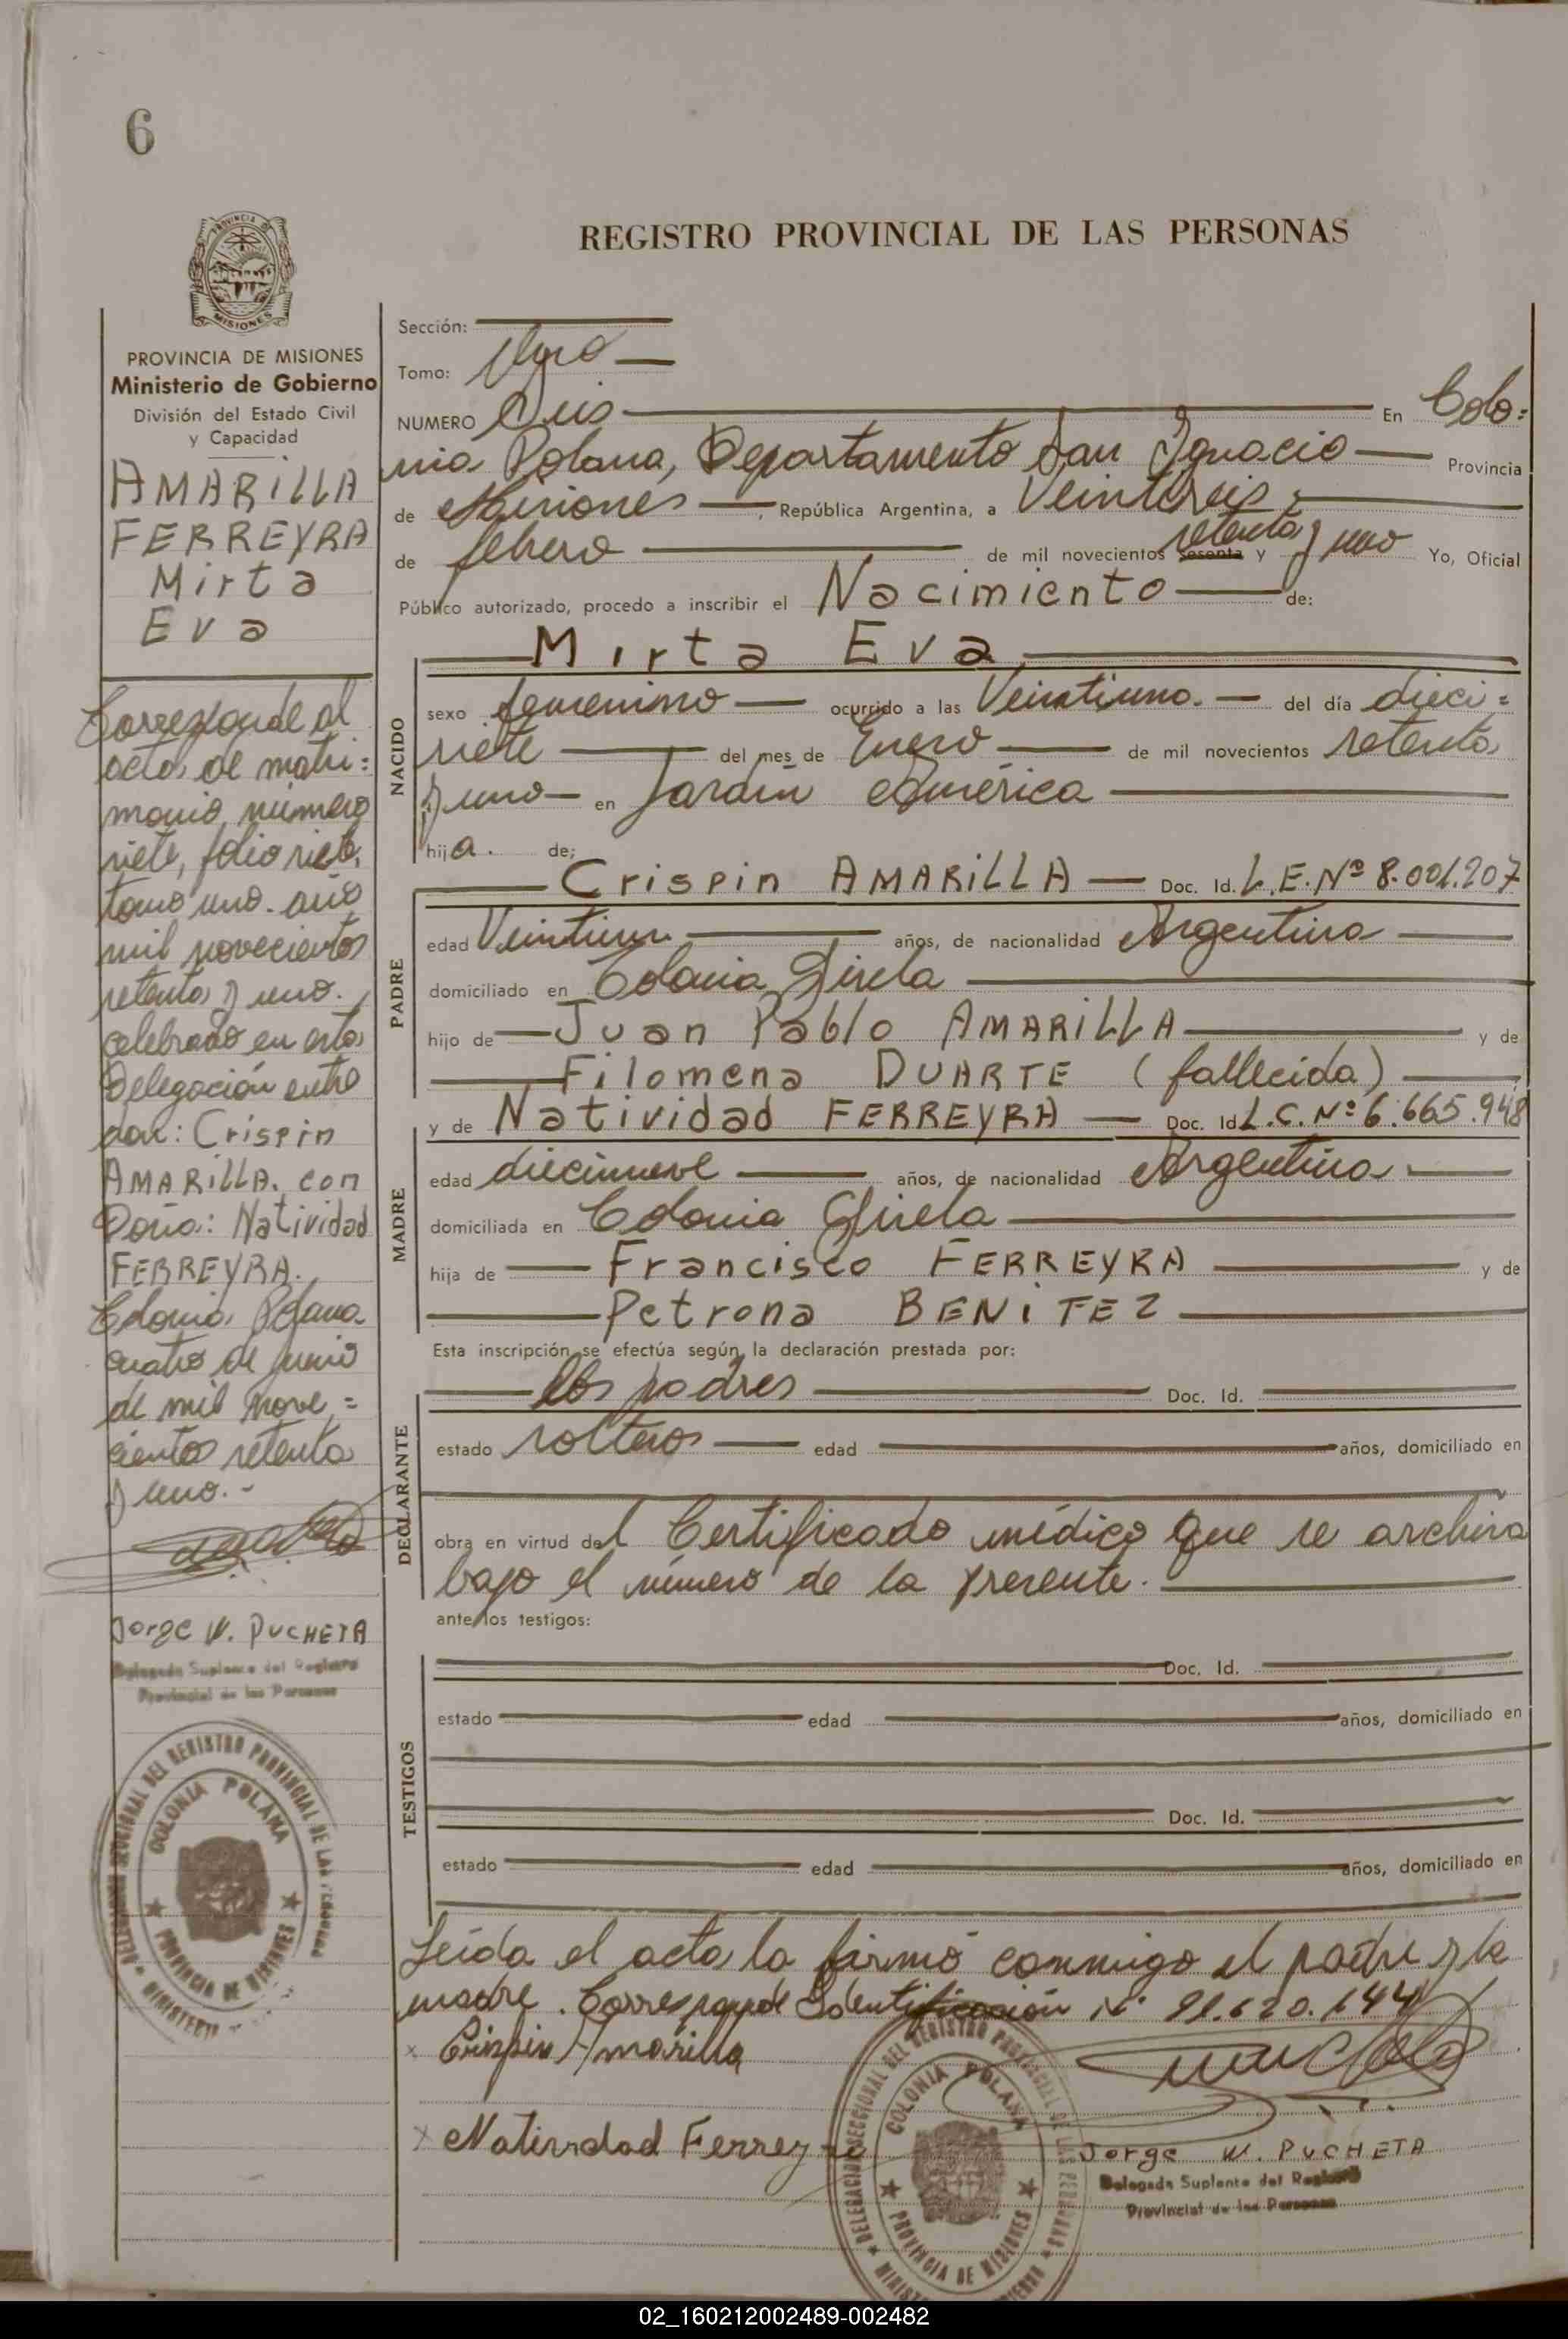 6
PROVINCIA DE
MISIONES
REGISTRO PROVINCIAL DE LAS PERSONAS
PROVINCIA DE MISIONES
Ministerio de Gobierno
División del Estado Civil
y Capacidad
AMARILLA
FERREYRA
Mirta
Eva
Corresponde al
acta de matri=
monio número
siete, folio siete,
tomo uno. año
mil novecientos
setenta y uno.
celebrado en esta
Delegación entre
don: Crispin
AMARILLA. con
Doña: Natividad
FERREYRA.
Colonia Polana
cuatro de junio
de mil nove =
cientos setenta
y uno.-
Jorge W. PUCHETA
Delegado Suplente del Registro
Provincial de las Personas
DELEGACION SECCIONAL DEL REGISTRO PROVINCIAL DE LAS PERSONAS
COLONIA POLANA
PROVINCIA DE MISIONES
Sección:
Tomo: Uno
NUMERO Seis En Colo=
nia Polana, Departamento San Ignacio Provincia
de Misiones , República Argentina, a Veintiseis
de febrero de mil novecientos sesenta setenta y y uno Yo, Oficial
Público autorizado, procedo a inscribir el Nacimiento de:
NACIDO
Mirta Eva
sexo femenino ocurrido a las Veintiuna. del día dieci=
siete del mes de Enero de mil novecientos setenta
y uno en Jardín América
hija. de;
PADRE
Crispin AMARILLA Doc. Id. L.E. Nº 8.001.207
edad Veintiun años, de nacionalidad Argentina
domiciliado en Colonia Gisela
hijo de Juan Pablo AMARILLA y de
Filomena DUARTE (fallecida)
MADRE
y de Natividad FERREYRA Doc. Id L.C. Nº 6.665.948
edad diecinueve años, de nacionalidad Argentina
domiciliada en Colonia Gisela
hija de Francisco FERREYRA y de
Petrona BENITEZ
Esta inscripción se efectúa según la declaración prestada por:
DECLARANTE
los padres Doc. Id.
estado solteros edad años, domiciliado en
obra en virtud del Certificado médico que se archiva
bajo el número de la presente.
ante los testigos:
TESTIGOS
Doc. Id.
estado edad años, domiciliado en
Doc. Id.
estado edad años, domiciliado en
Leída el acta la firmó conmigo el padre y la
madre. Corresponde Identificación Nº 21.620.144
x Crispin Amarilla
x Natividad Ferreyra
Jorge W. PUCHETA
Delegado Suplente del Registro
Provincial de las Personas
DELEGACION SECCIONAL DEL REGISTRO PROVINCIAL DE LAS PERSONAS
COLONIA POLANA
PROVINCIA DE MISIONES
02_160212002489-002482